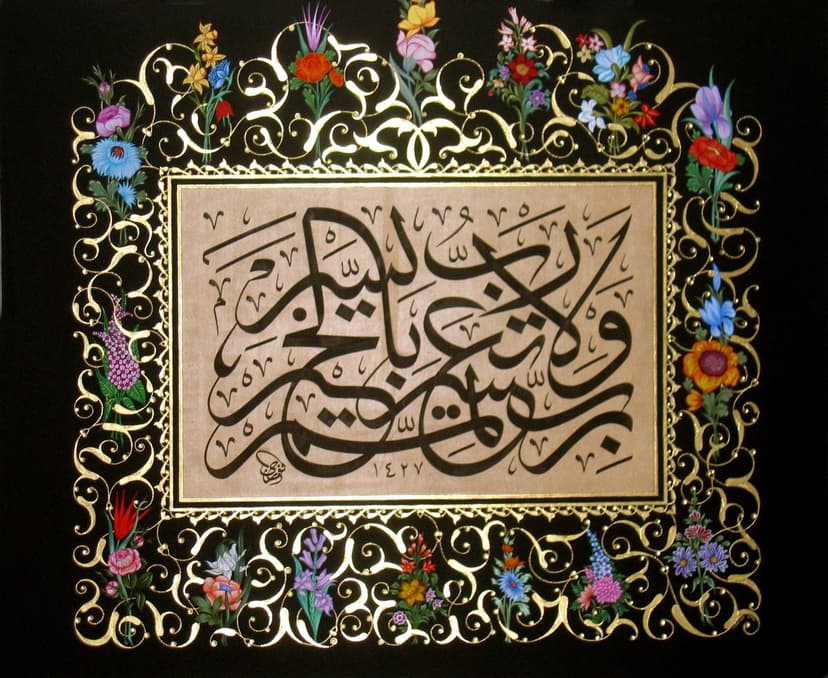 رب يسر ولا تعسر
رب تمم بالخير
١٤٢٧